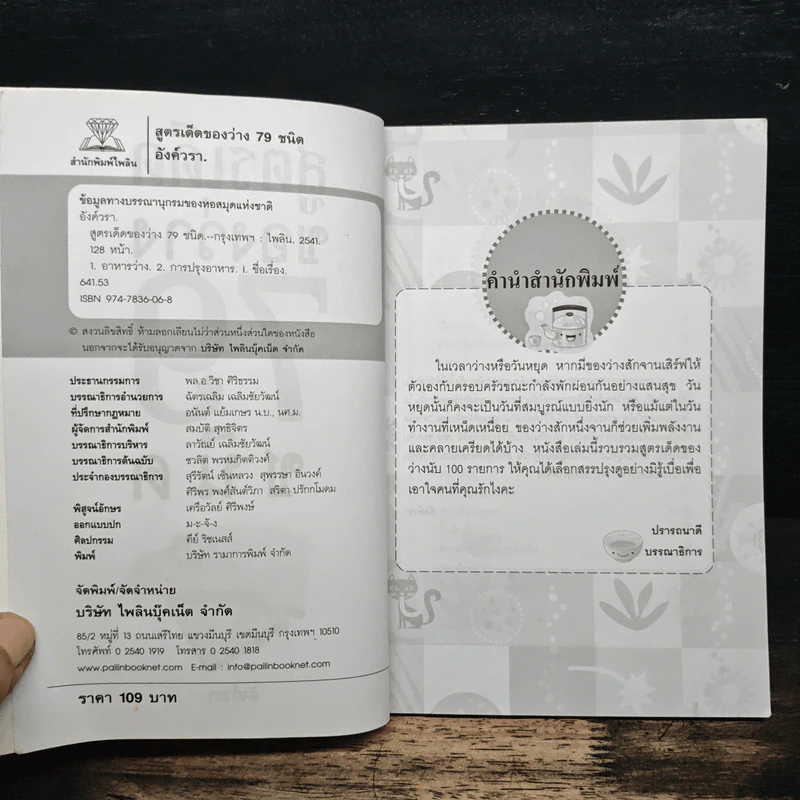 สำนักพิมพ์ไพลิน
สูตรเด็ดของว่าง 79 ชนิด
อังค์วรา.
ข้อมูลทางบรรณานุกรมของหอสมุดแห่งชาติ
อังค์วรา.
สูตรเด็ดของว่าง 79 ชนิด.--กรุงเทพฯ : ไพลิน, 2541.
128 หน้า.
1. อาหารว่าง. 2. การปรุงอาหาร. I. ชื่อเรื่อง.
641.53
ISBN 974-7836-06-8
© สงวนลิขสิทธิ์ ห้ามลอกเลียนไม่ว่าส่วนหนึ่งส่วนใดของหนังสือ
นอกจากจะได้รับอนุญาตจาก บริษัท ไพลินบุ๊คเน็ต จำกัด
ประธานกรรมการ พล.อ.วิชา ศิริธรรม
บรรณาธิการอำนวยการ ฉัตรเฉลิม เฉลิมชัยวัฒน์
ที่ปรึกษากฎหมาย อนันต์ แย้มเกษร น.บ., นศ.ม.
ผู้จัดการสำนักพิมพ์ สมบัติ สุทธิจิตร
บรรณาธิการบริหาร ลาวัณย์ เฉลิมชัยวัฒน์
บรรณาธิการต้นฉบับ ชวลิต พรหมกิตติวงศ์
ประจำกองบรรณาธิการ สุรีรัตน์ เซ็นหลวง สุพรรษา อินวงค์
ศิริพร พงศ์สันต์วิภา สริตา ปรักกโมดม
พิสูจน์อักษร เครือวัลย์ ศิริพงษ์
ออกแบบปก ม-ะ-จั-ง
ศิลปกรรม ดีย์ ริชเนสส์
พิมพ์ บริษัท รามาการพิมพ์ จำกัด
จัดพิมพ์/จัดจำหน่าย
บริษัท ไพลินบุ๊คเน็ต จำกัด
85/2 หมู่ที่ 13 ถนนเสรีไทย แขวงมีนบุรี เขตมีนบุรี กรุงเทพฯ 10510
โทรศัพท์ 0 2540 1919 โทรสาร 0 2540 1818
www.pailinbooknet.com E-mail : info@pailinbooknet.com
ราคา 109 บาท
คำนำสำนักพิมพ์
ในเวลาว่างหรือวันหยุด หากมีของว่างสักจานเสิร์ฟให้
ตัวเองกับครอบครัวขณะกำลังพักผ่อนกันอย่างแสนสุข วัน
หยุดนั้นก็คงจะเป็นวันที่สมบูรณ์แบบยิ่งนัก หรือแม้แต่ในวัน
ทำงานที่เหน็ดเหนื่อย ของว่างสักหนึ่งจานก็ช่วยเพิ่มพลังงาน
และคลายเครียดได้บ้าง หนังสือเล่มนี้รวบรวมสูตรเด็ดของ
ว่างนับ 100 รายการ ให้คุณได้เลือกสรรปรุงดูอย่างมิรู้เบื่อเพื่อ
เอาใจคนที่คุณรักไงคะ
ปรารถนาดี
บรรณาธิการ